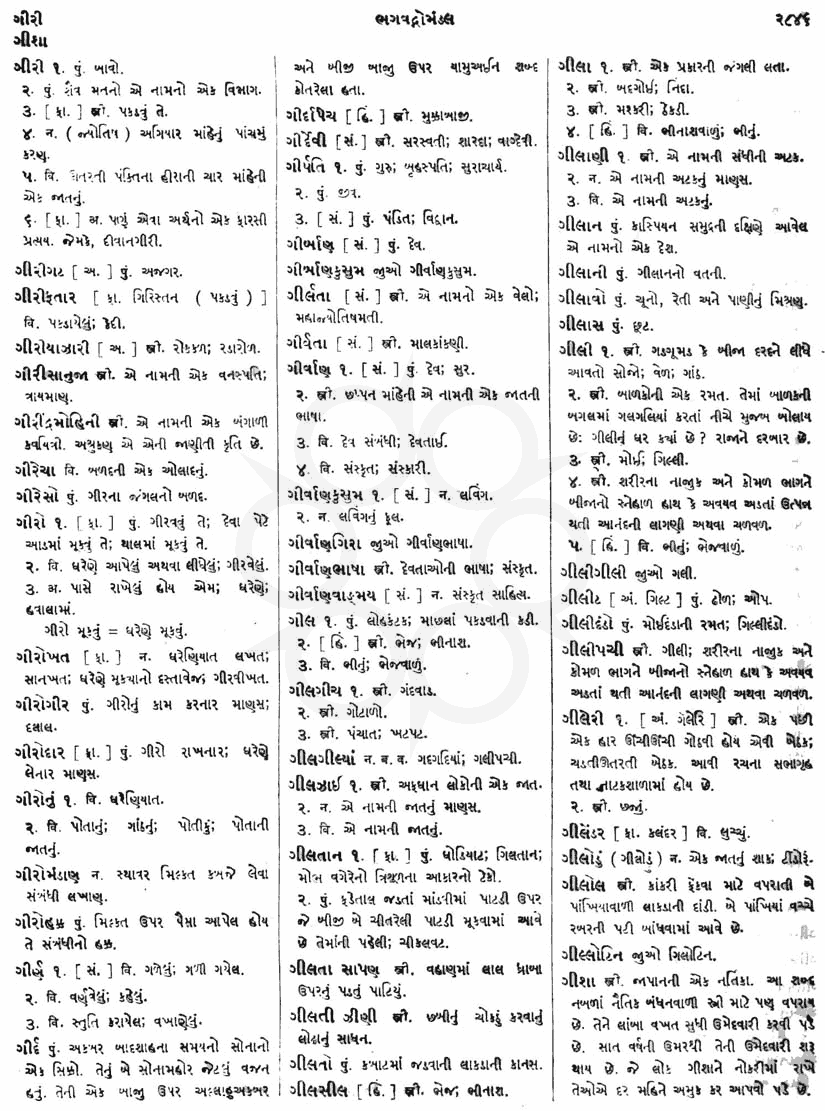 ગીરી
ગીશા
ભગવદ્ગોમંડલ
૨૮૪૬
ગીરી ૧. પું. બાવો.
૨. પું. શૈવ મતનો એ નામનો એક વિભાગ.
૩. [ ફા. ] સ્ત્રી. પકડવું તે.
૪. ન. ( જ્યોતિષ ) અગિયાર માંહેનું પાંચમું
કરણ.
૫. વિ. ઊતરતી પંક્તિના હીરાની ચાર માંહેની
એક જાતનું.
૬. [ ફા. ] અ. પણું એવા અર્થનો એક ફારસી
પ્રત્યય. જેમકે, દીવાનગીરી.
ગીરીગટ [ અ. ] પું. અજગર.
ગીરીફતાર [ ફા. ગિરિસ્તન ( પકડવું ) ]
વિ. પકડાયેલું; કેદી.
ગીરીયાઝારી [ અ. ] સ્ત્રી. રોકકળ; રડારોળ.
ગીરીસાનુજા સ્ત્રી. એ નામની એક વનસ્પતિ;
ત્રાયમાણ.
ગીરીંદ્રમોહિની સ્ત્રી. એ નામની એક બંગાળી
કવયિત્રી. અશ્રુકણ એ એની જાણીતી કૃતિ છે.
ગીરેચા વિ. બળદની એક ઓલાદનું.
ગીરેસો પું. ગીરના જંગલનો બળદ.
ગીરો ૧. [ ફા. ] પું. ગીરવવું તે; દેવા પેટે
આડમાં મૂકવું તે; થાલમાં મૂકવું તે.
૨. વિ. ઘરેણે આપેલું અથવા લીધેલું; ગીરવેલું.
૩. અ. પાસે રાખેલું હોય એમ; ઘરેણે;
હવાલામાં.
ગીરો મૂકવું = ઘરેણે મૂકવું.
ગીરોખત [ ફા. ] ન. ઘરેણિયાત લખત;
સાનખત; ઘરેણે મૂકયાનો દસ્તાવેજ; ગીરવીખત.
ગીરોગીર પું. ગીરોનું કામ કરનાર માણસ;
દલાલ.
ગીરોદાર [ ફા. ] પું. ગીરો રાખનાર; ઘરેણે
લેનાર માણસ.
ગીરોનું ૧. વિ. ઘરેણિયાત.
૨. વિ. પોતાનું; ગાંઠનું; પોતીકું; પોતાની
જાતનું.
ગીરોમંડાણ ન. સ્થાવર મિલ્કત કબજે લેવા
સંબંધી લખાણ.
ગીરોહક્ક પું. મિલ્કત ઉપર પૈસા આપેલ હોય
તે સંબંધીનો હક્ક.
ગીર્ણ ૧. [ સં. ] વિ. ગળેલું; ગળી ગયેલ.
૨. વિ. વર્ણવેલું; કહેલું.
૩. વિ. સ્તુતિ કરાયેલ; વખાણેલું.
ગીર્દ પું. અકબર બાદશાહના સમયનો સોનાનો
એક સિક્કો. તેનું બે સોનામહોર જેટલું વજન
હતું. તેની એક બાજુ ઉપર અલ્લાહુઅકબર
અને બીજી બાજુ ઉપર યામુઅઈન શબ્દ
કોતરેલા હતા.
ગીર્દાપેચ [ હિં. ] સ્ત્રી. મુક્કાબાજી.
ગીર્દેવી [ સં. ] સ્ત્રી. સરસ્વતી; શારદા; વાગ્દેવી.
ગીર્પતિ ૧. પું. ગુરુ; બૃહસ્પતિ; સુરાચાર્ય.
૨. પું. જીવ.
૩. [ સં. ] પું. પંડિત; વિદ્વાન.
ગીર્બાણ [ સં. ] પું. દેવ.
ગીર્બાણકુસુમ જુઓ ગીર્વાણકુસુમ.
ગીર્લતા [ સં. ] સ્ત્રી. એ નામનો એક વેલો;
મહાજ્યોતિષમતી.
ગીર્વતા [ સં. ] સ્ત્રી. માલકાંકણી.
ગીર્વાણ ૧. [ સં. ] પું. દેવ; સુર.
૨. સ્ત્રી. છપ્પન માંહેની એ નામની એક જાતની
ભાષા.
૩. વિ. દેવ સંબંધી; દેવતાઈ.
૪. વિ. સંસ્કૃત; સંસ્કારી.
ગીર્વાણકુસુમ ૧. [ સં. ] ન. લવિંગ.
૨. ન. લવિંગનું ફૂલ.
ગીર્વાણગિરા જુઓ ગીર્વાણભાષા.
ગીર્વાણભાષા સ્ત્રી. દેવતાઓની ભાષા; સંસ્કૃત.
ગીર્વાણવાઙ્મય [ સં. ] ન. સંસ્કૃત સાહિત્ય.
ગીલ ૧. પું. લોહકંટક; માછલાં પકડવાની કડી.
૨. [ હિં. ] સ્ત્રી. ભેજ; ભીનાશ.
૩. વિ. ભીનું; ભેજવાળું.
ગીલગીચ ૧. સ્ત્રી. ગંદવાડ.
૨. સ્ત્રી. ગોટાળો.
૩. સ્ત્રી. પંચાત; ખટપટ.
ગીલગીલ્યાં ન. બ. વ. ગદગદિયાં; ગલીપચી.
ગીલઝાઈ ૧. સ્ત્રી. અફઘાન લોકોની એક જાત.
૨. ન. એ નામની જાતનું માણસ.
૩. વિ. એ નામની જાતનું.
ગીલતાન ૧. [ ફા. ] પું. ધોડિયાટ; ગિલતાન;
મોભ વગેરેનો ત્રિશૂળના આકારનો ટેકો.
૨. પું. કડેતાલ જડતાં માંડવીમાં પાટડી ઉપર
જે બીજી બે ચીતરેલી પાટડી મૂકવામાં આવે
છે તેમાંની પહેલી; ચીકલવટ.
ગીલતા સાપણ સ્ત્રી. વહાણમાં લાલ ધ્રાબા
ઉપરનું પડતું પાટિયું.
ગીલતી ઝીણી સ્ત્રી. છબીનું ચોકઠું કરવાનું
લોઢાનું સાધન.
ગીલતો પું. કબાટમાં જડવાની લાકડાની કાનસ.
ગીલસીલ [ હિં. ] સ્ત્રી. ભેજ; ભીનાશ.
ગીલા ૧. સ્ત્રી. એક પ્રકારની જંગલી લતા.
૨. સ્ત્રી. બદગોઈ; નિંદા.
૩. સ્ત્રી. મશ્કરી; ઠેકડી.
૪. [ હિં. ] વિ. ભીનાશવાળું; ભીનું.
ગીલાણી ૧. સ્ત્રી. એ નામની સંધીની અટક.
૨. ન. એ નામની અટકનું માણસ.
૩. વિ. એ નામની અટકનું.
ગીલાન પું. કાસ્પિયન સમુદ્રની દક્ષિણે આવેલ
એ નામનો એક દેશ.
ગીલાની પું. ગીલાનનો વતની.
ગીલાવો પું. ચૂનો, રેતી અને પાણીનું મિશ્રણ.
ગીલાસ પું. છૂટ.
ગીલી ૧. સ્ત્રી. ગડગૂમડ કે બીજા દરદને લીધે
આવતો સોજો; વેળ; ગાંઠ.
૨. સ્ત્રી. બાળકોની એક રમત. તેમાં બાળકની
બગલમાં ગલગલિયાં કરતાં નીચે મુજબ બોલાય
છે: ગીલીનું ઘર કયાં છે? રાજાને દરબાર છે.
૩. સ્ત્રી. મોઈ; ગિલ્લી.
૪. સ્ત્રી. શરીરના નાજુક અને કોમળ ભાગને
બીજાનો સ્નેહાળ હાથ કે અવયવ અડતાં ઉત્પન્ન
થતી આનંદની લાગણી અથવા ચળવળ.
૫. [ હિં. ] વિ. ભીનું; ભેજવાળું.
ગીલીગીલી જુઓ ગલી.
ગીલીટ [ અં. ગિલ્ટ ] પું. ઢોળ; ઓપ.
ગીલીદંડો પું. મોઈદંડાની રમત; ગિલ્લીદંડો.
ગીલીપચી સ્ત્રી. ગીલી; શરીરના નાજુક અને
કોમળ ભાગને બીજાનો સ્નેહાળ હાથ કે અવયવ
અડતાં થતી આનંદની લાગણી અથવા ચળવળ.
ગીલેરી ૧. [ અં. ગૅલેરિ ] સ્ત્રી. એક પછી
એક હાર ઊંચીઊંચી ગોઠવી હોય એવી બેઠક;
ચડતીઊતરતી બેઠક. આવી રચના સભાગૃહ
તથા નાટકશાળામાં હોય છે.
૨. સ્ત્રી. છજું.
ગીલેંડર [ ફા. કલંદર ] વિ. લુચ્ચું.
ગીલોડું (ગીલોડું) ન. એક જાતનું શાક; ટીંડોરૂં.
ગીલોલ સ્ત્રી. કાંકરી ફેંકવા માટે વપરાતી બે
પાંખિયાવાળી લાકડાની દાંડી. બે પાંખિયાં વચ્ચે
રબરની પટી બાંધવામાં આવે છે.
ગીલ્લોટિન જુઓ ગિલોટિન.
ગીશા સ્ત્રી. જાપાનની એક નર્તિકા. આ શબ્દ
નબળાં નૈતિક બંધનવાળી સ્ત્રી માટે પણ વપરાય
છે. તેને લાંબા વખત સુધી ઉમેદવારી કરવી પડે
છે. સાત વર્ષની ઉમરથી તેની ઉમેદવારી શરૂ
થાય છે. જે લોક ગીશાને નોકરીમાં રાખે
તેઓએ દર મહિને અમુક કર આપવો પડે છે.